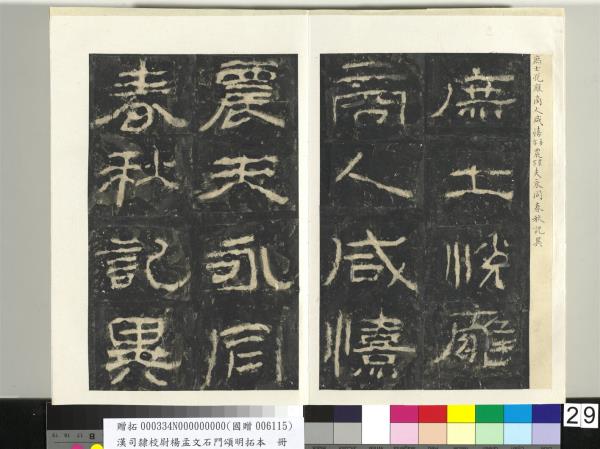 庶士悅雍
商人咸憘
農夫永同
春秋記異
庶士悅雍商人咸憘農夫永同春秋記異
贈拓 000334N000000000(國贈 006115)
漢司隸校尉楊孟文石門頌明拓本 冊
29
B